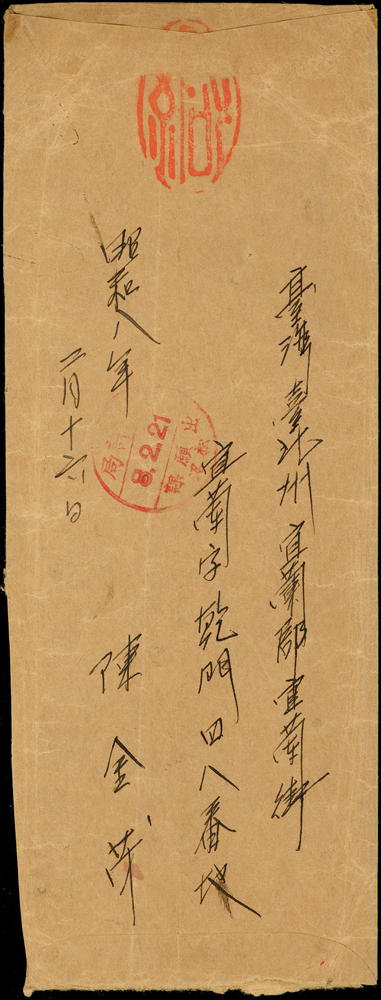 臺灣臺北州宜蘭郡宜蘭街
宜蘭字乾門四八番地
陳金茂
昭和八年
二月十六日
8.2.21
出願
局